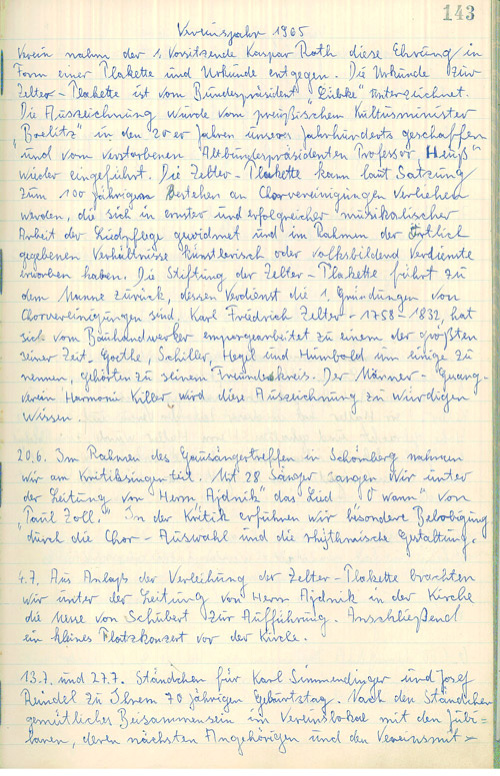 143
Vereinsjahr 1965
Verein nahm der 1. Vorsitzende Kaspar Rath diese Ehrung in
Form einer Plakette und Urkunde entgegen. Die Urkunde zur
Zelter-Plakette ist vom Bundespräsident "Lübke" unterzeichnet.
Die Auszeichnung wurde vom preußischen Kultusminister
"Boelitz" in den 20er Jahren unseres Jahrhunderts geschaffen
und vom verstorbenen Altbundespräsidenten Professor "Heuß"
wieder eingeführt. Die Zelter-Plakette kann laut Satzung
zum 100 jährigen Bestehen an Chorvereinigungen verliehen
werden, die sich in ernster und erfolgreicher musikalischer
Arbeit der Liedpflege gewidmet und im Rahmen der örtlich
gegebenen Verhältnisse künstlerisch oder volksbildend Verdienste
erworben haben. Die Stiftung der Zelter-Plakette führt zu
dem Manne zurück, dessen Verdienst die 1. Gründungen von
Chorvereinigungen sind. Karl Friedrich Zelter - 1758 - 1832, hat
sich vom Bauhandwerker emporgearbeitet zu einem der größten
seiner Zeit. Goethe, Schiller, Hegel und Humbold um einige zu
nennen, gehörten zu seinem Freundeskreis. Der Männer-Gesang-
verein Harmonie Killer wird diese Auszeichnung zu würdigen
wissen.
20.6. Im Rahmen des Gausängertreffen in Schömberg nahmen
wir am Kritiksingen teil. Mit 28 Sänger sangen wir unter
der Leitung von Herrn Ajdnik das Lied "O wann" von
"Paul Zoll." In der Kritik erfuhren wir besondere Belobigung
durch die Chor-Auswahl und die rhythmische Gestaltung.
4.7. Aus Anlaß der Verleihung der Zelter-Plakette brachten
wir unter der Leitung von Herrn Ajdnik in der Kirche
die neue von Schubert zur Aufführung. Anschließend
ein kleines Platzkonzert vor der Kirche.
13.7. und 27.7. Ständchen für Karl Simmendinger und Josef
Reindel zu Ihrem 70 jährigen Geburtstag. Nach den Ständchen
gemütliches Beisammensein im Vereinslokal mit den Jubi-
laren, deren nächsten Angehörigen und den Vereinsmit-